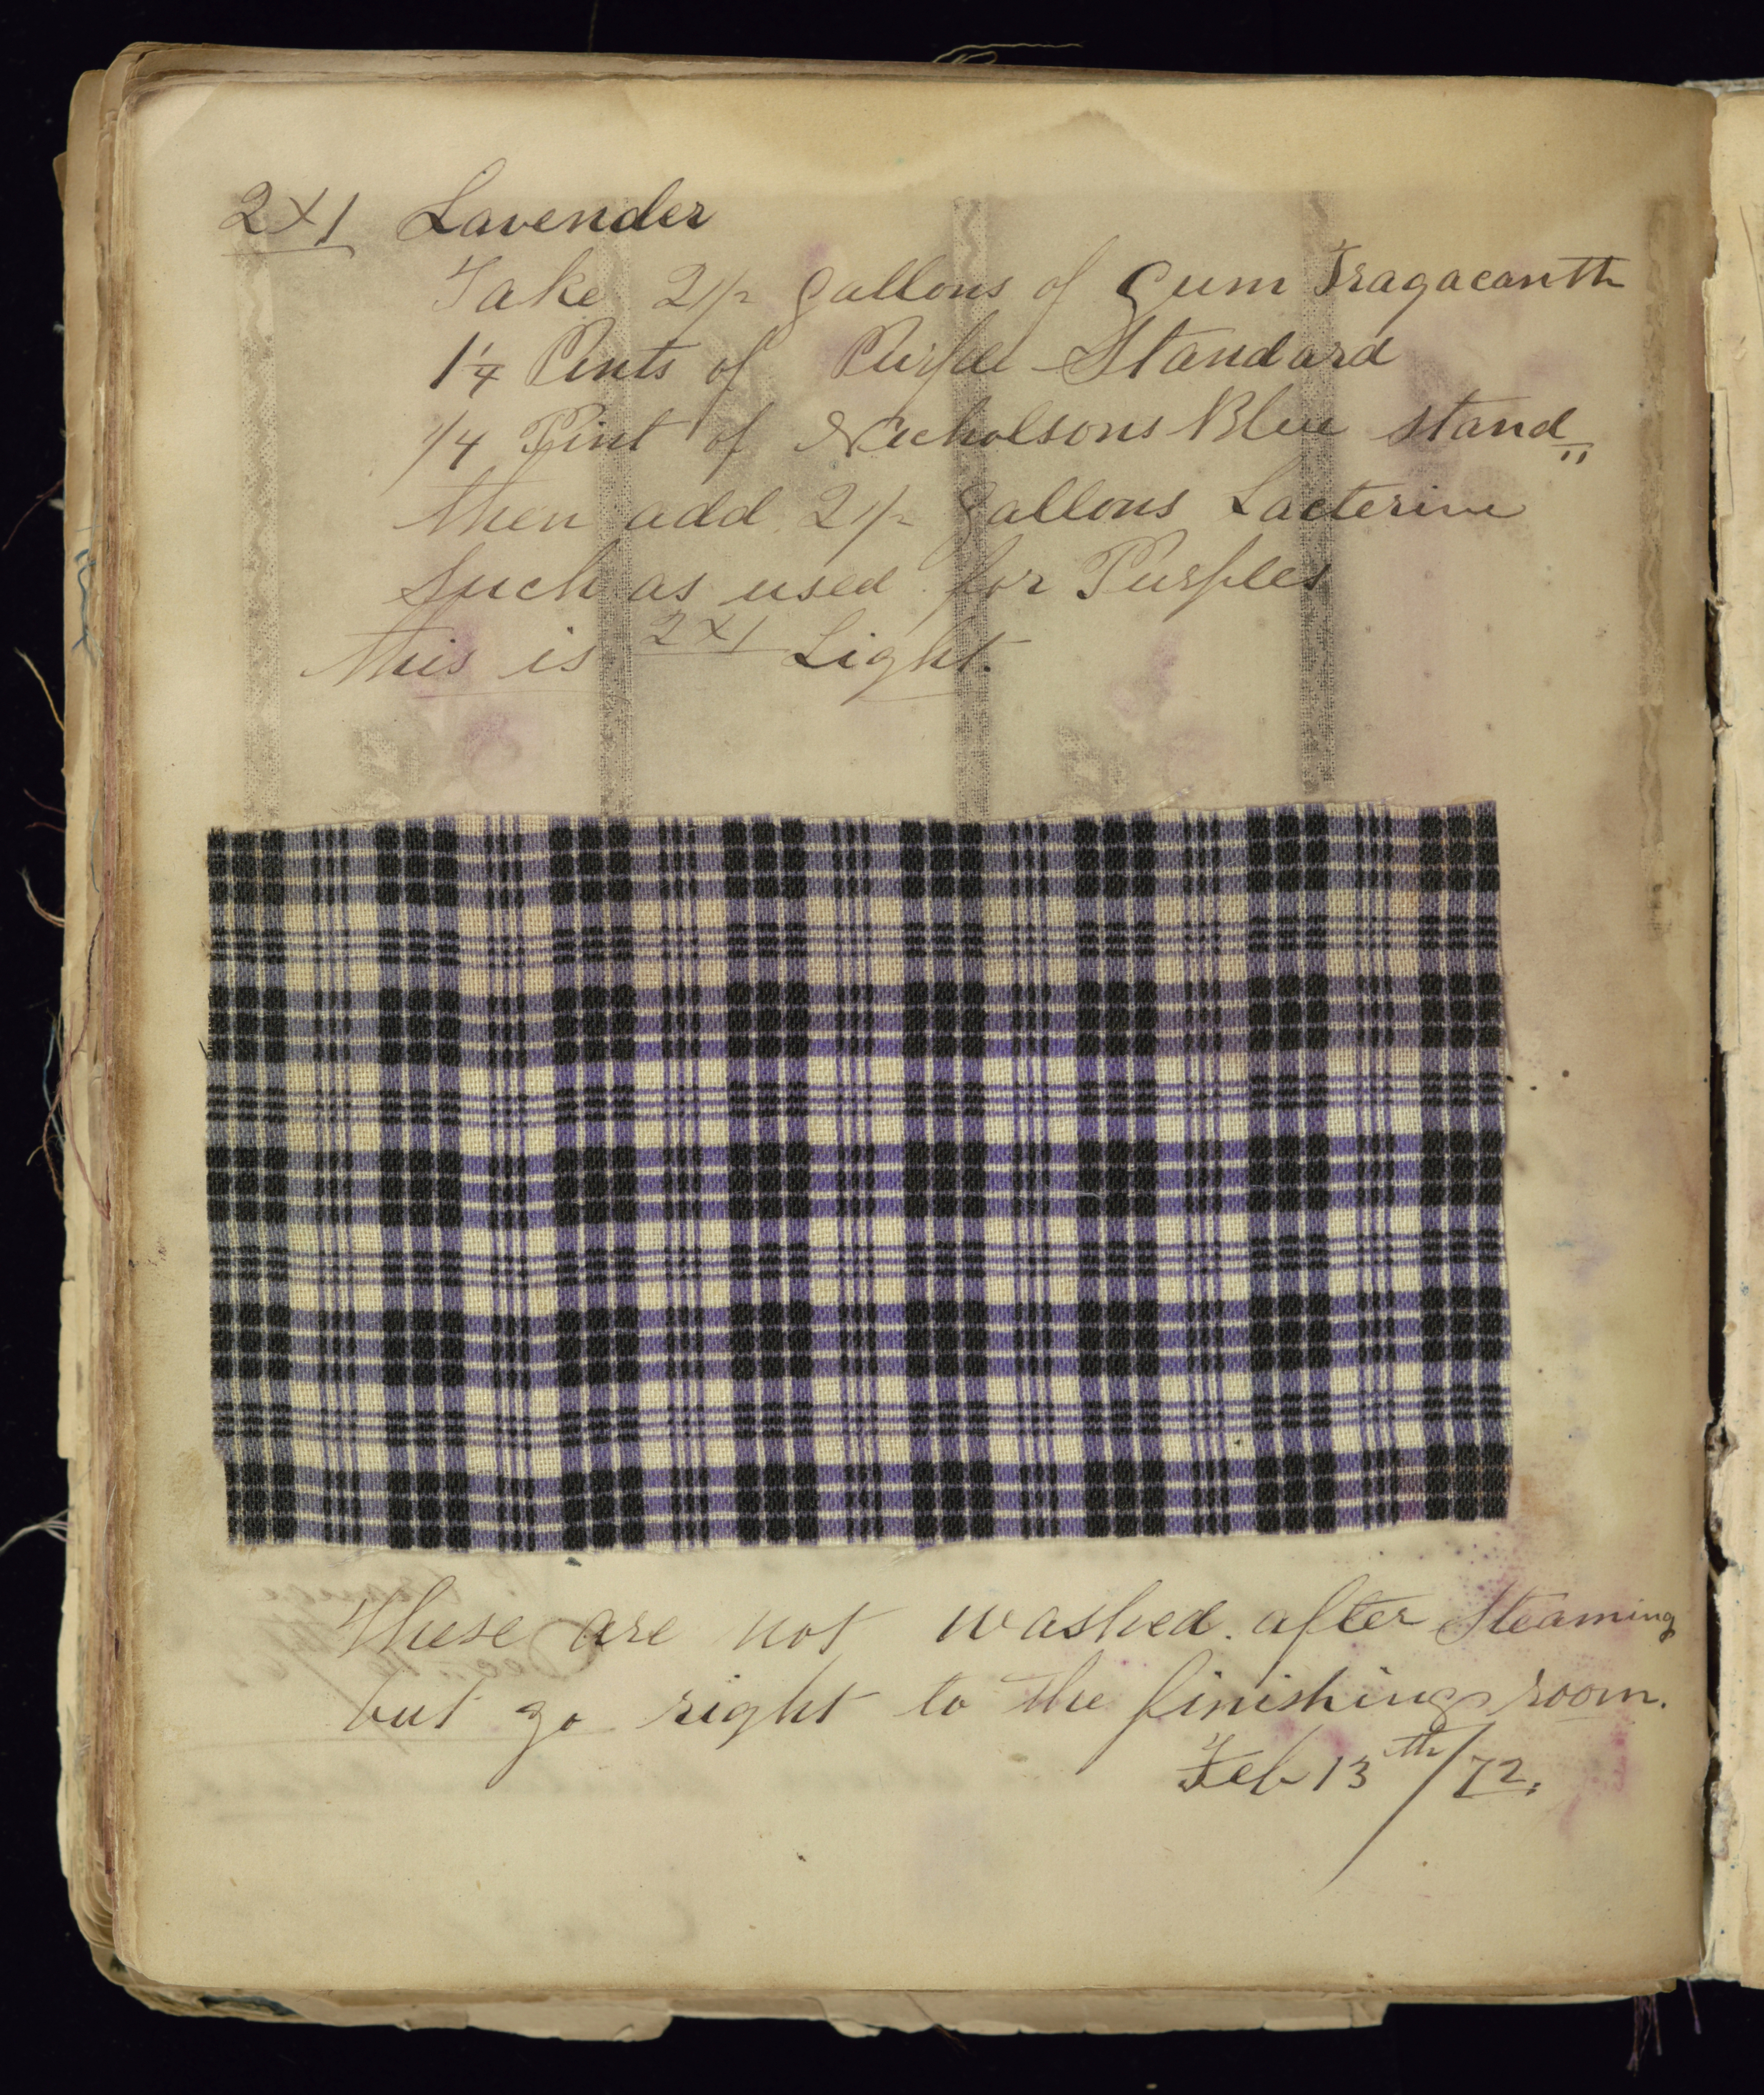 2x1 Lavender
Take 2 1/2 gallons of Gum Tragacanth
1 1/4 Pints of Purple Standard
1/4 Pint of Nicholsons Blue stand"
then add 2 1/2 gallons Lacterine
Such as used for Purples
this is 2x1 Light.
These are not washed after Steaming
but go right to the finishing room.
Feb 13th/72.